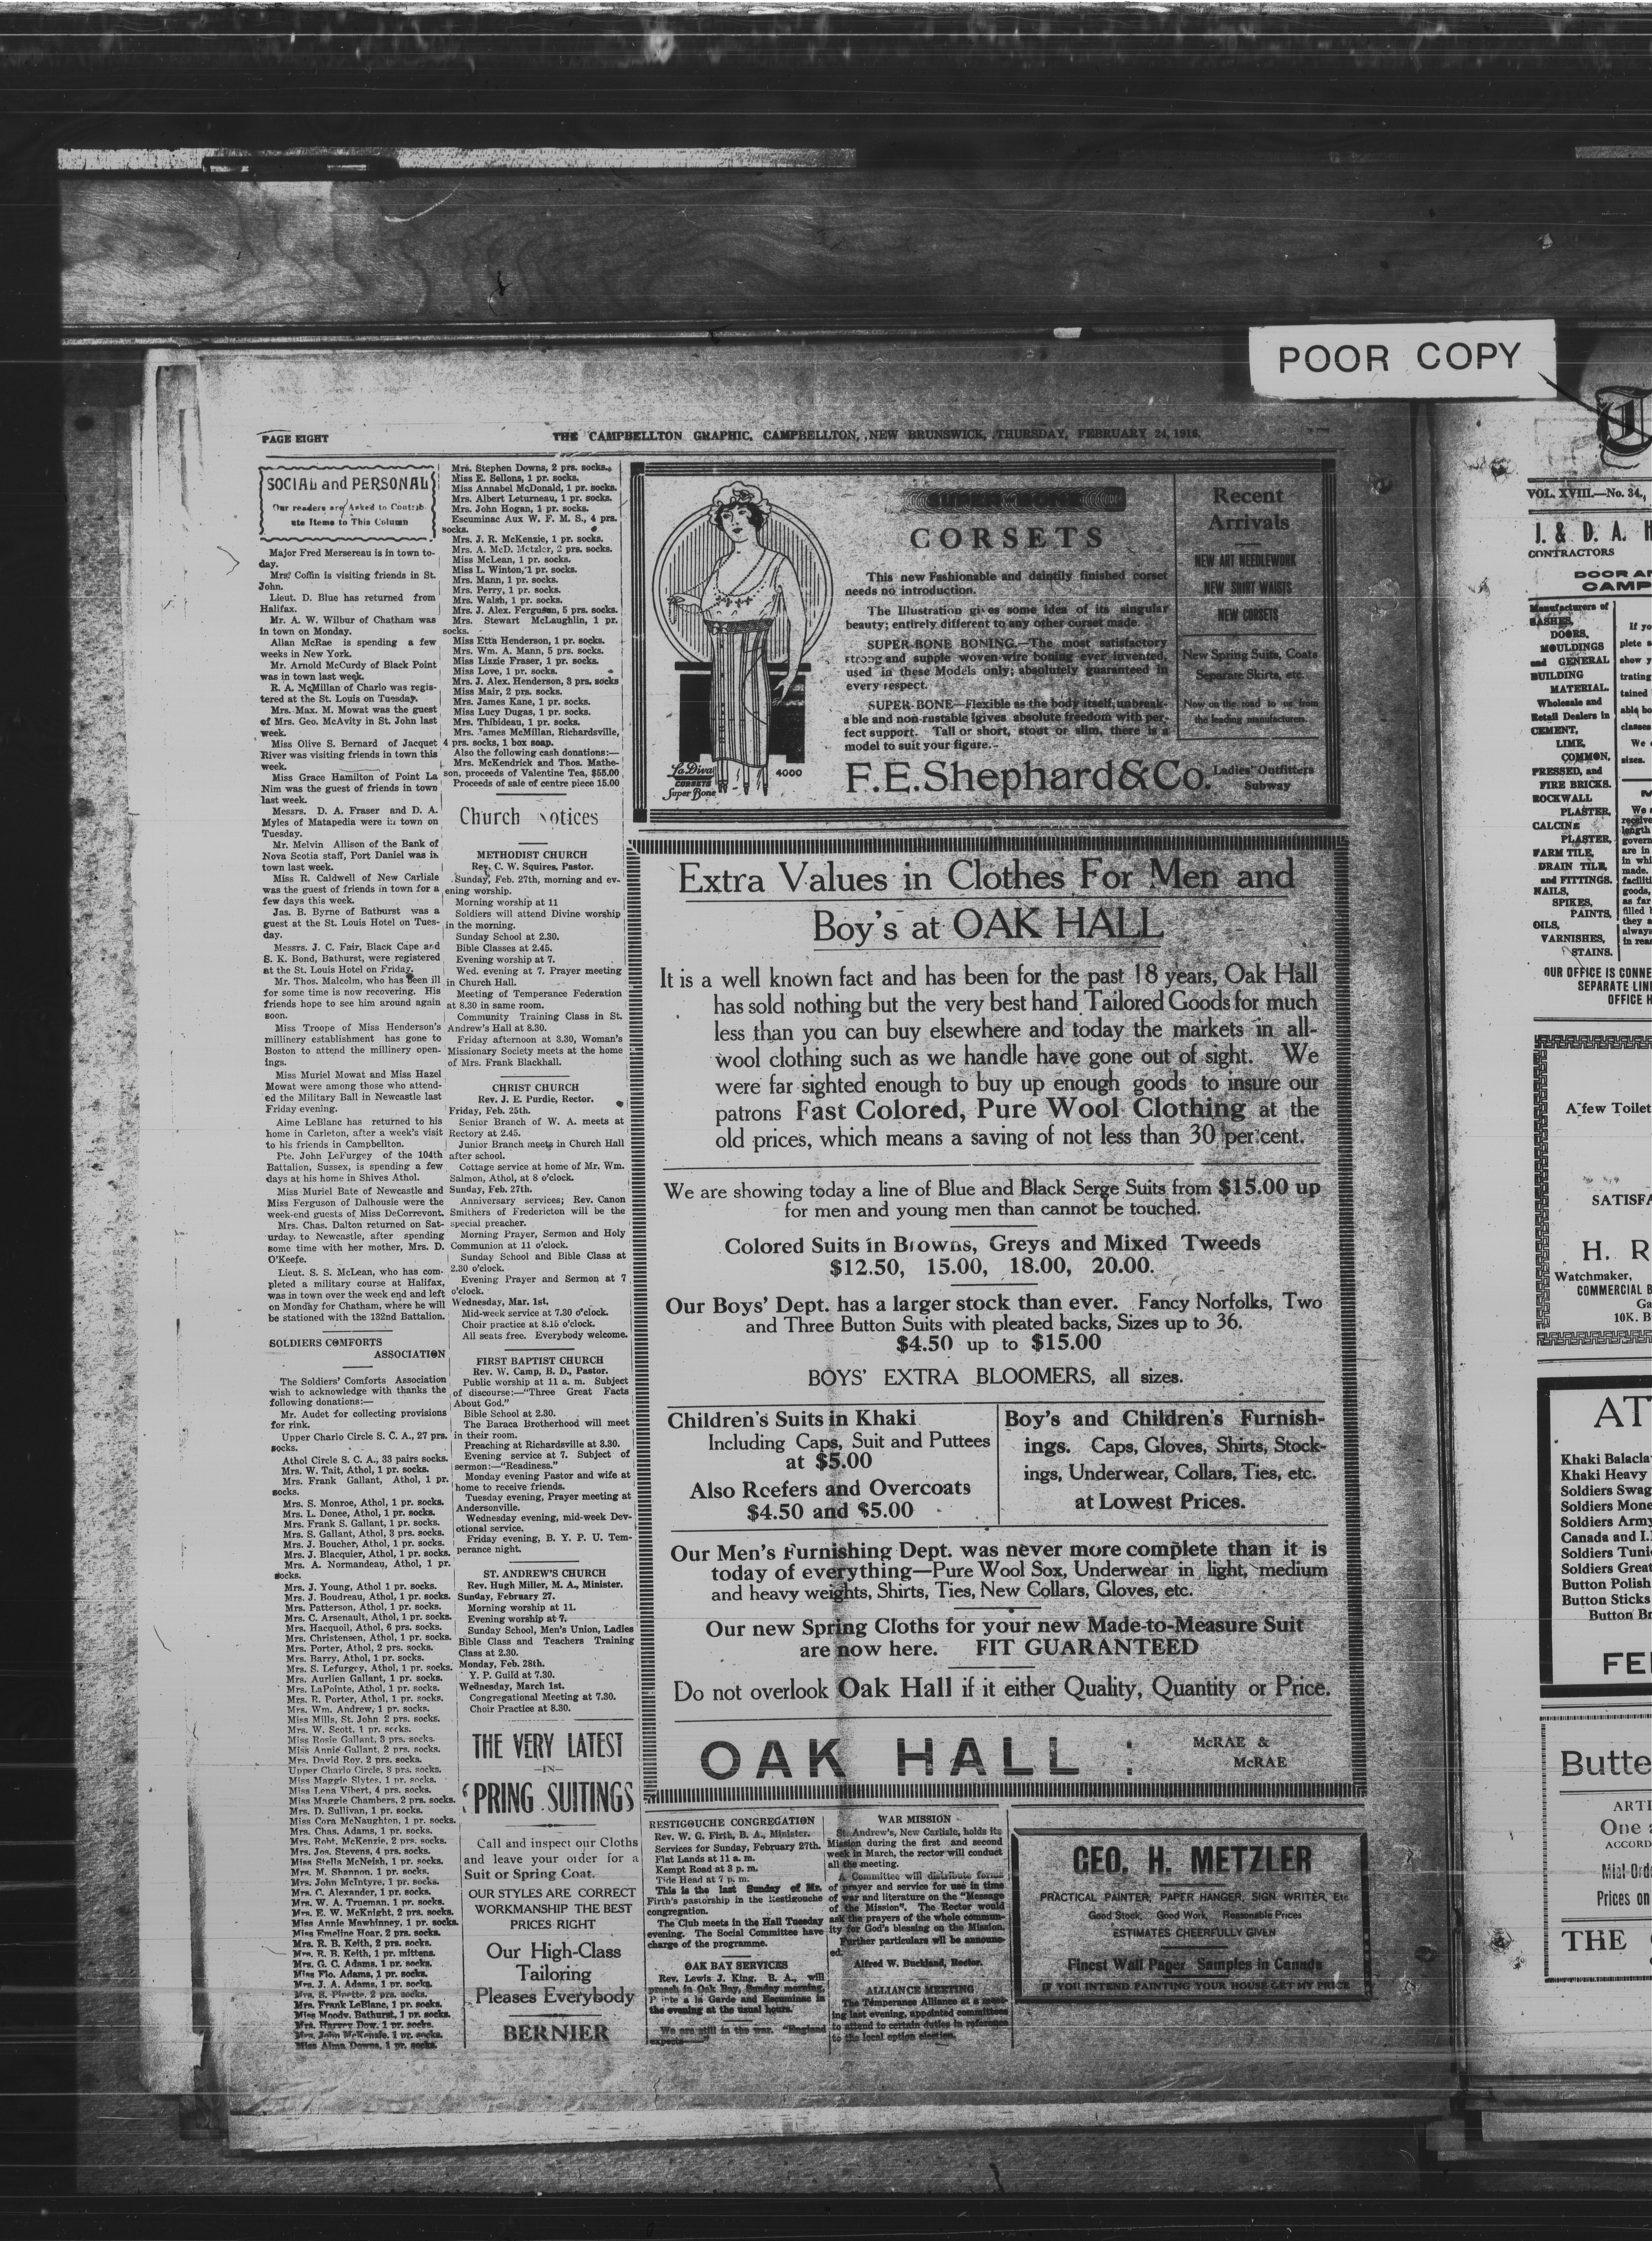 POOR COPY
PAGE EIGHT
THE CAMPBELLTON GRAPHIC, CAMPBELLTON, NEW BRUNSWICK, THURSDAY, FEBRUARY 24, 1916.
SOCIAL and PERSONAL
Our readers are Asked to Contrib
ute Items to This Column
Major Fred Mersereau is in town to-
day.
Mrs. Coffin is visiting friends in St.
John.
Lieut. D. Blue has returned from
Halifax.
Mr. A. W. Wilbur of Chatham was
in town on Monday.
Allan McRae is spending a few
weeks in New York.
Mr. Arnold McCurdy of Black Point
was in town last week.
R. A. McMillan of Charlo was regis-
tered at the St. Louis on Tuesday.
Mrs. Max. M. Mowat was the guest
of Mrs. Geo. McAvity in St. John last
week.
Miss Olive S. Bernard of Jacquet
River was visiting friends in town this
week.
Miss Grace Hamilton of Point La
Nim was the guest of friends in town
last week.
Messrs. D. A. Fraser and D. A.
Myles of Matapedia were in town on
Tuesday.
Mr. Melvin Allison of the Bank of
Nova Scotia staff, Port Daniel was in
town last week.
Miss R. Caldwell of New Carlisle
was the guest of friends in town for a
few days this week.
Jas. B. Byrne of Bathurst was a
guest at the St. Louis Hotel on Tues-
day.
Messrs. J. C. Fair, Black Cape and
S. K. Bond, Bathurst, were registered
at the St. Louis Hotel on Friday.
Mr. Thos. Malcolm, who has been ill
for some time is now recovering. His
friends hope to see him around again
soon.
Miss Troope of Miss Henderson's
millinery establishment has gone to
Boston to attend the millinery open-
ings.
Miss Muriel Mowat and Miss Hazel
Mowat were among those who attend-
ed the Military Ball in Newcastle last
Friday evening.
Aime LeBlanc has returned to his
home in Carleton, after a week's visit
to his friends in Campbellton.
Pte. John LeFurgey of the 104th
Battalion, Sussex, is spending a few
days at his home in Shives Athol.
Miss Muriel Bate of Newcastle and
Miss Ferguson of Dalhousie were the
week-end guests of Miss DeCorrevont.
Mrs. Chas. Dalton returned on Sat-
urday to Newcastle, after spending
some time with her mother, Mrs. D.
O'Keefe.
Lieut. S. S. McLean, who has com-
pleted a military course at Halifax,
was in town over the week end and left
on Monday for Chatham, where he will
be stationed with the 132nd Battalion.
SOLDIERS COMFORTS
ASSOCIATION
The Soldiers' Comforts Association
wish to acknowledge with thanks the
following donations:—
Mr. Audet for collecting provisions
for rink.
Upper Charlo Circle S. C. A., 27 prs.
socks.
Athol Circle S. C. A., 33 pairs socks.
Mrs. W. Tait, Athol, 1 pr. socks.
Mrs. Frank Gallant, Athol, 1 pr.
socks.
Mrs. S. Monroe, Athol, 1 pr. socks.
Mrs. L. Donee, Athol, 1 pr. socks.
Mrs. Frank S. Gallant, 1 pr. socks.
Mrs. S. Gallant, Athol, 3 prs. socks.
Mrs. J. Boucher, Athol, 1 pr. socks.
Mrs. J. Blacquier, Athol, 1 pr. socks.
Mrs. A. Normandeau, Athol, 1 pr.
socks.
Mrs. J. Young, Athol 1 pr. socks.
Mrs. J. Boudreau, Athol, 1 pr. socks.
Mrs. Patterson, Athol, 1 pr. socks.
Mrs. C. Arsenault, Athol, 1 pr. socks.
Mrs. Hacquoil, Athol, 6 prs. socks.
Mrs. Christensen, Athol, 1 pr. socks.
Mrs. Porter, Athol, 2 prs. socks.
Mrs. Barry, Athol, 1 pr. socks.
Mrs. S. Lefurgey, Athol, 1 pr. socks.
Mrs. Aurlien Gallant, 1 pr. socks.
Mrs. LaPointe, Athol, 1 pr. socks.
Mrs. R. Porter, Athol, 1 pr. socks.
Mrs. Wm. Andrew, 1 pr. socks.
Miss Mills, St. John 2 prs. socks.
Mrs. W. Scott, 1 pr. socks.
Miss Rosie Gallant, 3 prs. socks.
Miss Annie Gallant, 2 prs. socks.
Mrs. David Roy, 2 prs. socks.
Upper Charlo Circle, 8 prs. socks.
Miss Maggie Slytes, 1 pr. socks.
Miss Lena Vibert, 4 prs. socks.
Miss Maggie Chambers, 2 prs. socks.
Mrs. D. Sullivan, 1 pr. socks.
Miss Cora McNaughton, 1 pr. socks.
Mrs. Chas. Adams, 1 pr. socks.
Mrs. Robt. McKenzie, 2 prs. socks.
Mrs. Jos. Stevens, 4 prs. socks.
Miss Stella McNeish, 1 pr. socks.
Mrs. M. Shannon, 1 pr. socks.
Mrs. John McIntyre, 1 pr. socks.
Mrs. C. Alexander, 1 pr. socks.
Mrs. W. A. Trueman, 1 pr. socks.
Mrs. E. W. McKnight, 2 prs. socks.
Miss Annie Mawhinney, 1 pr. socks.
Miss Emeline Hoar, 2 prs. socks.
Mrs. R. B. Keith, 2 prs. socks.
Mrs. R. B. Keith, 1 pr. mittens.
Mrs. G. C. Adams, 1 pr. socks.
Miss Flo. Adams, 1 pr. socks.
Mrs. J. A. Adams, 1 pr. socks.
Mrs. S. Pinette, 2 prs. socks.
Mrs. Frank LeBlanc, 1 pr. socks.
Miss Moody, Bathurst, 1 pr. socks.
Mrs. Harvey Dow, 1 pr. socks.
Mrs. John McKenzie, 1 pr. socks.
Miss Alma Downs, 1 pr. socks.
Mrs. Stephen Downs, 2 prs. socks.
Miss E. Sellons, 1 pr. socks.
Miss Annabel McDonald, 1 pr. socks.
Mrs. Albert Leturneau, 1 pr. socks.
Mrs. John Hogan, 1 pr. socks.
Escuminac Aux W. F. M. S., 4 prs.
socks.
Mrs. J. R. McKenzie, 1 pr. socks.
Mrs. A. McD. Metzler, 2 prs. socks.
Miss McLean, 1 pr. socks.
Miss L. Winton, 1 pr. socks.
Mrs. Mann, 1 pr. socks.
Mrs. Perry, 1 pr. socks.
Mrs. Walsh, 1 pr. socks.
Mrs. J. Alex. Ferguson, 5 prs. socks.
Mrs. Stewart McLaughlin, 1 pr.
socks.
Miss Etta Henderson, 1 pr. socks.
Mrs. Wm. A. Mann, 5 prs. socks.
Miss Lizzie Fraser, 1 pr. socks.
Miss Love, 1 pr. socks.
Mrs. J. Alex. Henderson, 3 prs. socks
Miss Mair, 2 prs. socks.
Mrs. James Kane, 1 pr. socks.
Miss Lucy Dugas, 1 pr. socks.
Mrs. Thibideau, 1 pr. socks.
Mrs. James McMillan, Richardsville,
4 prs. socks, 1 box soap.
Also the following cash donations:—
Mrs. McKendrick and Thos. Mathe-
son, proceeds of Valentine Tea, $55.00
Proceeds of sale of centre piece 15.00
Church Notices
METHODIST CHURCH
Rev. C. W. Squires, Pastor.
Sunday, Feb. 27th, morning and ev-
ening worship.
Morning worship at 11
Soldiers will attend Divine worship
in the morning.
Sunday School at 2.30.
Bible Classes at 2.45.
Evening worship at 7.
Wed. evening at 7. Prayer meeting
in Church Hall.
Meeting of Temperance Federation
at 8.30 in same room.
Community Training Class in St.
Andrew's Hall at 8.30.
Friday afternoon at 3.30, Woman's
Missionary Society meets at the home
of Mrs. Frank Blackhall.
CHRIST CHURCH
Rev. J. E. Purdie, Rector.
Friday, Feb. 25th.
Senior Branch of W. A. meets at
Rectory at 2.45.
Junior Branch meets in Church Hall
after school.
Cottage service at home of Mr. Wm.
Salmon, Athol, at 8 o'clock.
Sunday, Feb. 27th.
Anniversary services; Rev. Canon
Smithers of Fredericton will be the
special preacher.
Morning Prayer, Sermon and Holy
Communion at 11 o'clock.
Sunday School and Bible Class at
2.30 o'clock.
Evening Prayer and Sermon at 7
o'clock.
Wednesday, Mar. 1st.
Mid-week service at 7.30 o'clock.
Choir practice at 8.15 o'clock.
All seats free. Everybody welcome.
FIRST BAPTIST CHURCH
Rev. W. Camp, B. D., Pastor.
Public worship at 11 a. m. Subject
of discourse:—"Three Great Facts
About God."
Bible School at 2.30.
The Baraca Brotherhood will meet
in their room.
Preaching at Richardsville at 3.30.
Evening service at 7. Subject of
sermon:—"Readiness."
Monday evening Pastor and wife at
home to receive friends.
Tuesday evening, Prayer meeting at
Andersonville.
Wednesday evening, mid-week Dev-
otional service.
Friday evening, B. Y. P. U. Tem-
perance night.
ST. ANDREW'S CHURCH
Rev. Hugh Miller, M. A., Minister.
Sunday, February 27.
Morning worship at 11.
Evening worship at 7.
Sunday School, Men's Union, Ladies
Bible Class and Teachers Training
Class at 2.30.
Monday, Feb. 28th.
Y. P. Guild at 7.30.
Wednesday, March 1st.
Congregational Meeting at 7.30.
Choir Practice at 8.30.
THE VERY LATEST
—IN—
SPRING SUITINGS
Call and inspect our Cloths
and leave your order for a
Suit or Spring Coat.
OUR STYLES ARE CORRECT
WORKMANSHIP THE BEST
PRICES RIGHT
Our High-Class
Tailoring
Pleases Everybody
BERNIER
SUPER BONE
CORSETS
This new Fashionable and daintily finished corset
needs no introduction.
The Illustration gives some idea of its singular
beauty; entirely different to any other corset made.
SUPER-BONE BONING.—The most satisfactory
strong and supple woven-wire boning ever invented,
used in these Models only; absolutely guaranteed in
every respect.
SUPER-BONE—Flexible as the body itself, unbreak-
able and non-rustable gives absolute freedom with per-
fect support. Tall or short, stout or slim, there is a
model to suit your figure.
La Diva
CORSETS
Super Bone
4000
Recent
Arrivals
NEW ART NEEDLEWORK
NEW SHIRT WAISTS
NEW CORSETS
New Spring Suits, Coats
Separate Skirts, etc.
Now on the road to us from
the leading manufacturers.
F.E.Shephard&Co.
Ladies' Outfitters
Subway
Extra Values in Clothes For Men and
Boy's at OAK HALL
It is a well known fact and has been for the past 18 years, Oak Hall
has sold nothing but the very best hand Tailored Goods for much
less than you can buy elsewhere and today the markets in all-
wool clothing such as we handle have gone out of sight. We
were far sighted enough to buy up enough goods to insure our
patrons Fast Colored, Pure Wool Clothing at the
old prices, which means a saving of not less than 30 per cent.
We are showing today a line of Blue and Black Serge Suits from $15.00 up
for men and young men than cannot be touched.
Colored Suits in Browns, Greys and Mixed Tweeds
$12.50, 15.00, 18.00, 20.00.
Our Boys' Dept. has a larger stock than ever. Fancy Norfolks, Two
and Three Button Suits with pleated backs, Sizes up to 36.
$4.50 up to $15.00
BOYS' EXTRA BLOOMERS, all sizes.
Children's Suits in Khaki
Including Caps, Suit and Puttees
at $5.00
Also Reefers and Overcoats
$4.50 and $5.00
Boy's and Children's Furnish-
ings. Caps, Gloves, Shirts, Stock-
ings, Underwear, Collars, Ties, etc.
at Lowest Prices.
Our Men's Furnishing Dept. was never more complete than it is
today of everything—Pure Wool Sox, Underwear in light, medium
and heavy weights, Shirts, Ties, New Collars, Gloves, etc.
Our new Spring Cloths for your new Made-to-Measure Suit
are now here. FIT GUARANTEED
Do not overlook Oak Hall if it either Quality, Quantity or Price.
OAK HALL :
McRAE &
McRAE
RESTIGOUCHE CONGREGATION
Rev. W. G. Firth, B. A., Minister.
Services for Sunday, February 27th.
Flat Lands at 11 a. m.
Kempt Road at 3 p. m.
Tide Head at 7 p. m.
This is the last Sunday of Mr.
Firth's pastorship in the Restigouche
congregation.
The Club meets in the Hall Tuesday
evening. The Social Committee have
charge of the programme.
OAK BAY SERVICES
Rev. Lewis J. King, B. A., will
preach in Oak Bay, Sunday morning,
Pointe a la Garde and Escuminac in
the evening at the usual hours.
We are still in the war. "England
expects——"
WAR MISSION
St. Andrew's, New Carlisle, holds its
Mission during the first and second
week in March, the rector will conduct
all the meeting.
A Committee will distribute forms
of prayer and service for use in time
of war and literature on the "Message
of the Mission". The Rector would
ask the prayers of the whole commun-
ity for God's blessing on the Mission.
Further particulars wll be announc-
ed.
Alfred W. Buckland, Rector.
ALLIANCE MEETING
The Temperance Alliance at a meet-
ing last evening, appointed committees
to attend to certain duties in reference
to the local option election.
GEO. H. METZLER
PRACTICAL PAINTER, PAPER HANGER, SIGN WRITER, Etc
Good Stock, Good Work, Reasonable Prices
ESTIMATES CHEERFULLY GIVEN
Finest Wall Paper Samples in Canada
IF YOU INTEND PAINTING YOUR HOUSE GET MY PRICE
VOL. XVIII.—No. 34.
J. & D. A. H
CONTRACTORS
DOOR AN
CAMP
Manufacturers of
SASHES,
DOORS,
MOULDINGS
and GENERAL
BUILDING
MATERIAL.
Wholesale and
Retail Dealers in
CEMENT,
LIME,
COMMON,
PRESSED, and
FIRE BRICKS.
ROCKWALL
PLASTER,
CALCINE
PLASTER,
FARM TILE,
DRAIN TILE,
and FITTINGS.
NAILS,
SPIKES,
PAINTS,
OILS,
VARNISHES,
STAINS.
If yo
plete s
show y
trating
tained
able bo
classes
We
sizes.
We
receive
length
govern
are in
in whi
made.
faciliti
goods,
as far
filled b
they a
always
in reas
OUR OFFICE IS CONNE
SEPARATE LINE
OFFICE H
A few Toilet
SATISFA
H. R
Watchmaker,
COMMERCIAL B
Ga
10K. B
AT
Khaki Balacla
Khaki Heavy
Soldiers Swag
Soldiers Mone
Soldiers Army
Canada and I.
Soldiers Tuni
Soldiers Great
Button Polish
Button Sticks
Button Br
FE
Butte
ARTI
One
ACCORD
Mial-Orde
Prices on
THE